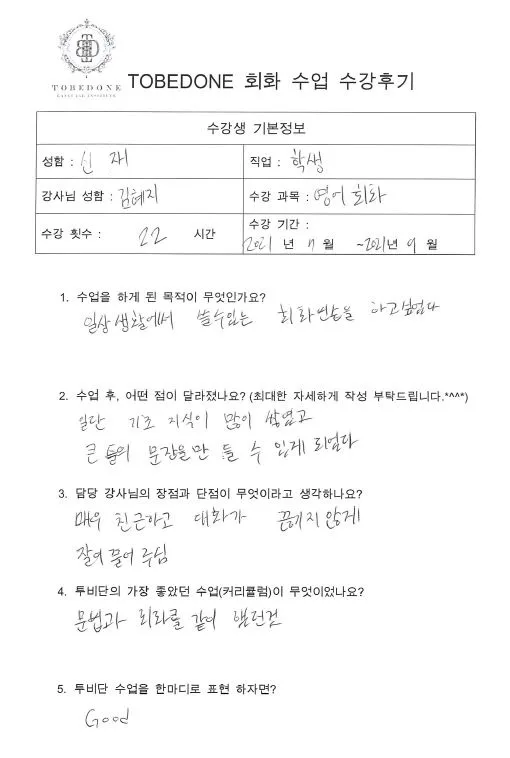 TOBEDONE
LANGUAGE INSTITUTE
TOBEDONE 회화 수업 수강후기
수강생 기본정보
성함 : 신 재
직업 : 학생
강사님 성함 : 김혜지
수강 과목 : 영어 회화
수강 횟수 : 22 시간
수강 기간 :
2021 년 7 월 ~2021년 9 월
1. 수업을 하게 된 목적이 무엇인가요?
일상생활에서 쓸수있는 회화연습을 하고싶었다
2. 수업 후, 어떤 점이 달라졌나요? (최대한 자세하게 작성 부탁드립니다.*^^*)
일단 기초 지식이 많이 쌓였고
큰 틀의 문장을 만들 수 있게 되었다
3. 담당 강사님의 장점과 단점이 무엇이라고 생각하나요?
매우 친근하고 대화가 끊기지 않게
잘 이끌어 주심
4. 투비단의 가장 좋았던 수업(커리큘럼)이 무엇이었나요?
문법과 회화를 같이 했던것
5. 투비단 수업을 한마디로 표현 하자면?
Good